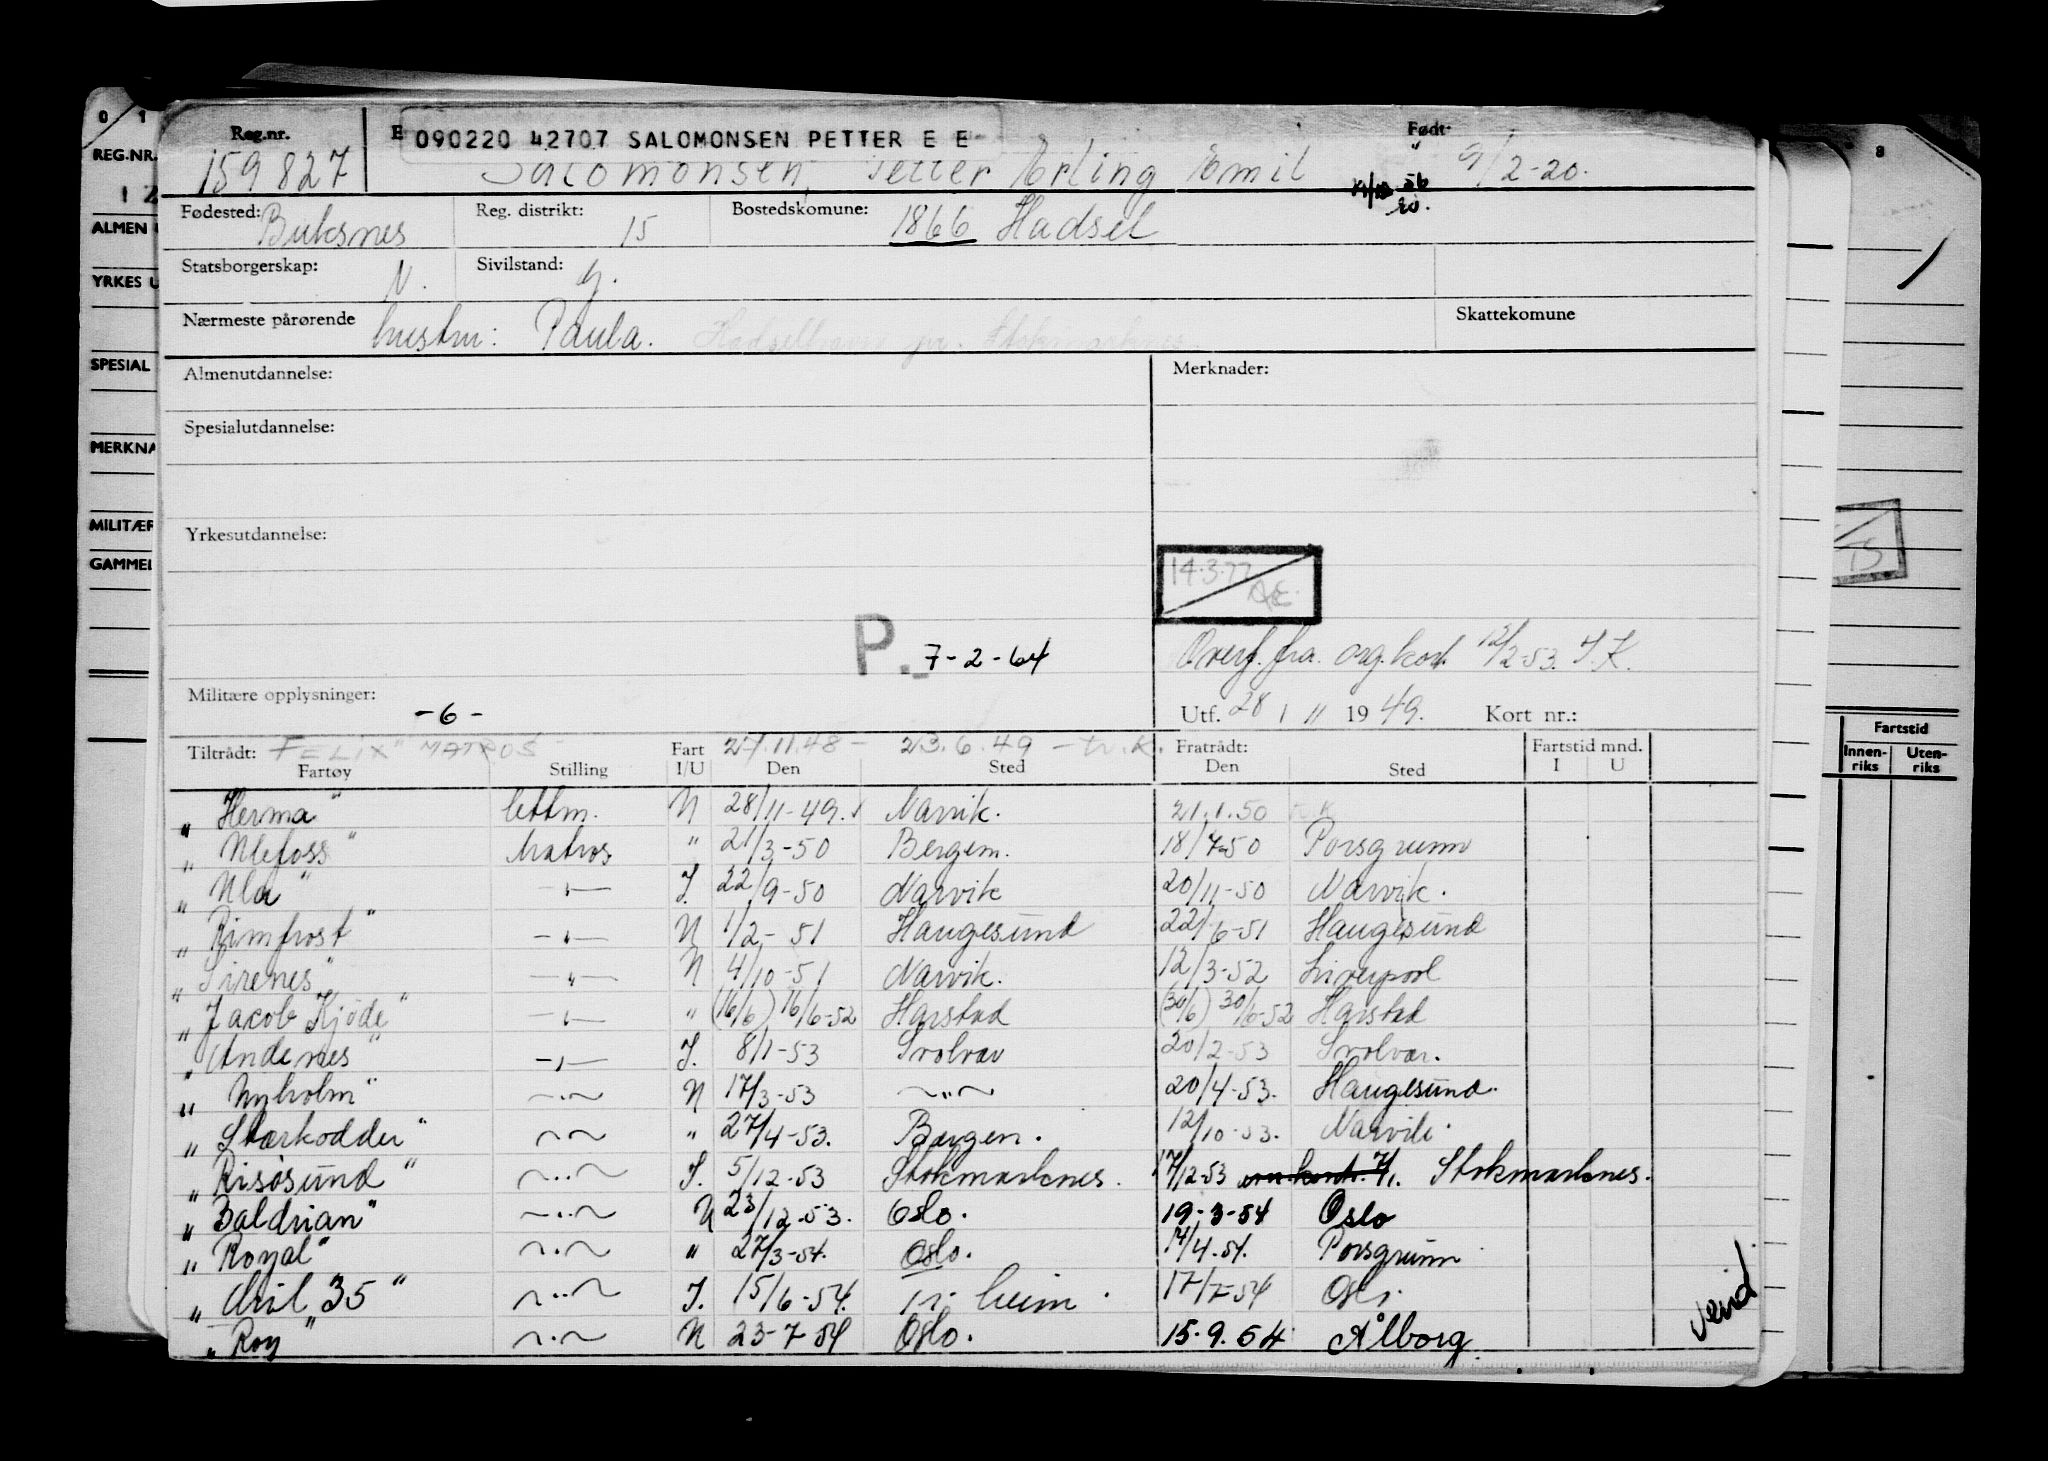 0 1
REG.NR.
ALMEN
YRKES U
SPESIAL
MERKNA
MILITÆR
GAMMEL
Reg.nr. E 090220 42707 SALOMONSEN PETTER E E Født:
159 827 Salomonsen, Petter Erling Emil 9/2-20.
Fødested: Buksnes Reg. distrikt: 15 Bostedskomune: 1866 Hadsel
Statsborgerskap: N. Sivilstand: g.
Nærmeste pårørende hustru: Paula. Skattekomune
Almenutdannelse: Merknader:
Spesialutdannelse:
Yrkesutdannelse:
14.3.77
P. 7-2-64 Overf. fra org.kort 12/2-53. I.K.
Militære opplysninger: Utf. 28 / 11 1949. Kort nr.:
-6-
Tiltrådt: FELIX" MATROS Fart 27.11.48 - 23.6.49 - Fratrådt: Fartstid mnd.
Fartøy Stilling I/U Den Sted Den Sted I U
"Herma" lettm. U 28/11-49. Narvik. 21.1.50
"Ulefoss" Matros " 21/3-50 Bergen. 18/7-50 Porsgrunn
"Ula" -"- I. 22/9-50 Narvik 20/11-50 Narvik.
"Rimfrost" -"- U 1/2-51 Haugesund 22/6-51 Haugesund
"Sirenes" -"- U 4/10-51 Narvik. 12/3-52 Liverpool
"Jacob Kjöde" -"- " (16/6) 16/6-52 Harstad (30/6) 30/6-52 Harstad
"Andenes" -"- I. 8/1-53 Svolvær 20/2-53 Svolvær.
"Nyholm" -"- U 17/3-53 -"- 20/4-53. Haugesund.
"Starkodder" -"- " 27/4-53. Bergen. 12/10-53. Narvik.
"Risösund" -"- I. 5/12-53 Stokmarknes. 17/12-53 Stokmarknes.
"Baldrian" -"- U 23/12-53. Oslo. 19-3-54 Oslo
"Royal" -"- " 27/3-54. Oslo. 14/4.54. Porsgrunn
35" -"- I. 15/6-54. Tr.heim 17/7-54 Oslo.
"Roy" -"- U 23-7-54 Oslo. 15.9.54 Ålborg.
Vend
8
Fartstid
Innen-riks Uten-riks